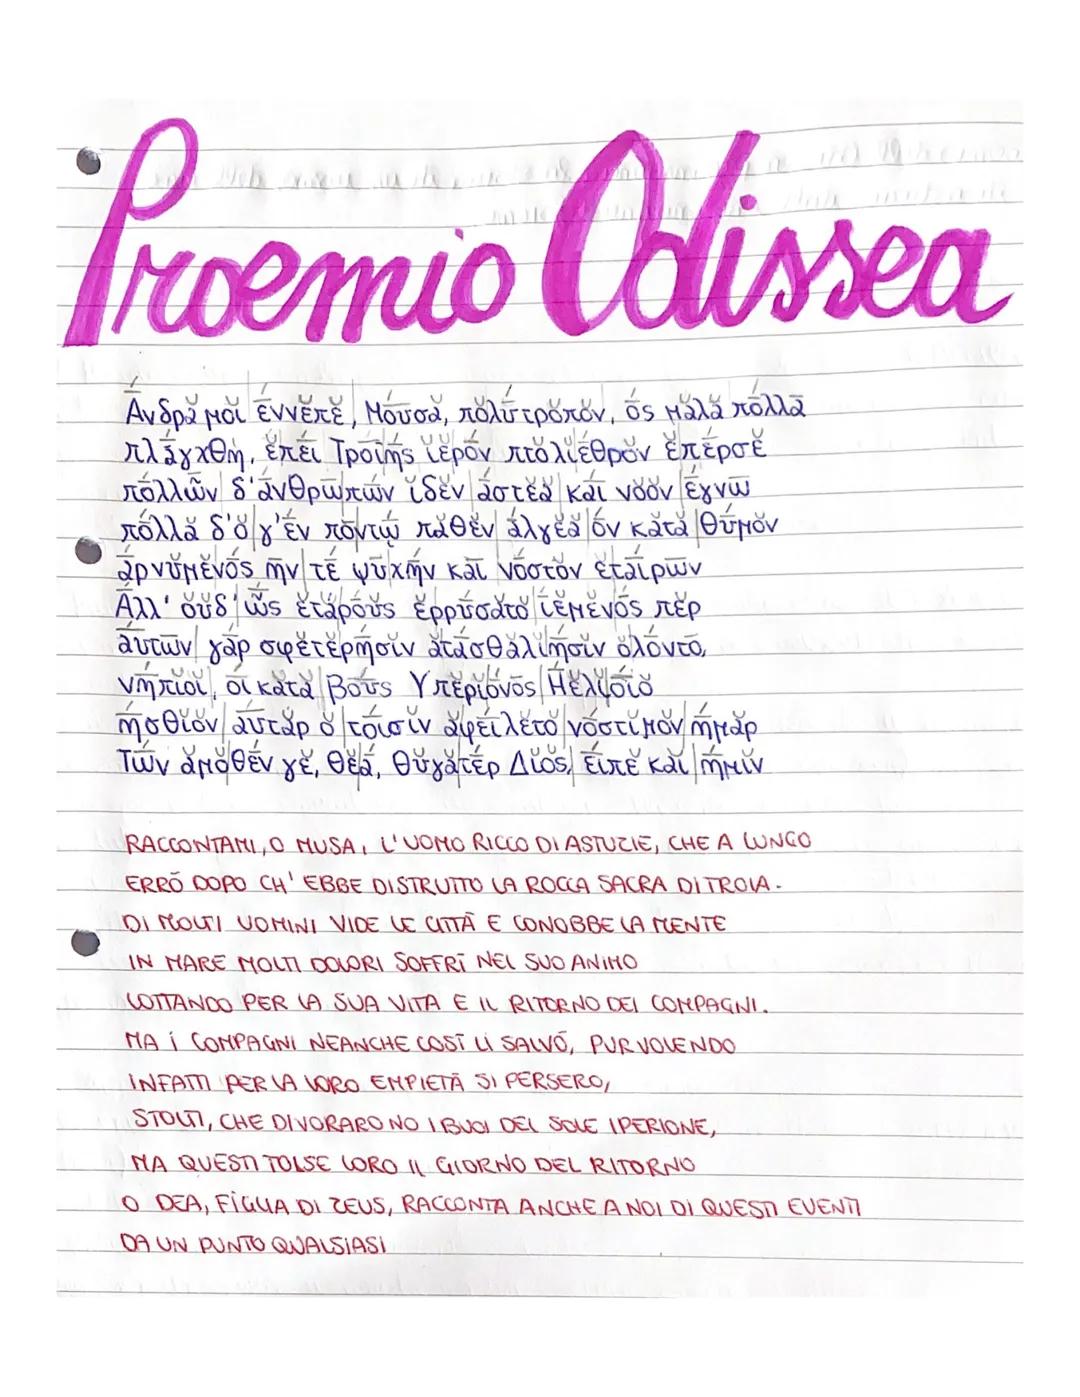 Proemio Odissea
Ἄνδρα μοι ἔννεπε, Μοῦσα, πολύτροπον, ὅς μάλα πολλὰ
πλάγχθη, ἐπεὶ Τροίης ἱερόν πτολίεθρον ἔπερσε
πολλῶν δ'ἀνθρώπων ἴδεν ἄστεα καὶ νόον ἔγνω
πολλὰ δ'ὅ γ'ἐν πόντῳ πάθεν ἄλγεα ὅν κατὰ θυμόν
ἀρνύμενος ἥν τε ψυχήν καὶ νόστον ἑταίρων
Ἀλλ' οὐδ' ὧς ἑτάρους ἐρρύσατο ἱέμενός περ
αὐτῶν γὰρ σφετέρῃσιν ἀτασθαλίῃσιν ὄλοντο,
νήπιοι, οἵ κατὰ βοῦς Ὑπερίονος Ἠελίοιο
ἤσθιον αὐτὰρ ὁ τοῖσιν ἀφείλετο νόστιμον ἦμαρ
Τῶν ἁμόθεν γε, θεά, θύγατερ Διός, εἰπὲ καὶ ἡμῖν
RACCONTAMI, O MUSA, L'UOMO RICCO DI ASTUZIE, CHE A LUNGO
ERRÒ DOPO CH' EBBE DISTRUTTO LA ROCCA SACRA DI TROIA.
DI MOLTI UOMINI VIDE LE CITTÀ E CONOBBE LA MENTE
IN MARE MOLTI DOLORI SOFFRÌ NEL SUO ANIMO
LOTTANDO PER LA SUA VITA E IL RITORNO DEI COMPAGNI.
MA I COMPAGNI NEANCHE COSÌ LI SALVÒ, PUR VOLENDO
INFATTI PER LA LORO EMPIETÀ SI PERSERO,
STOLTI, CHE DIVORARONO I BUOI DEL SOLE IPERIONE,
MA QUESTI TOLSE LORO IL GIORNO DEL RITORNO
O DEA, FIGLIA DI ZEUS, RACCONTA ANCHE A NOI DI QUESTI EVENTI
DA UN PUNTO QUALSIASI